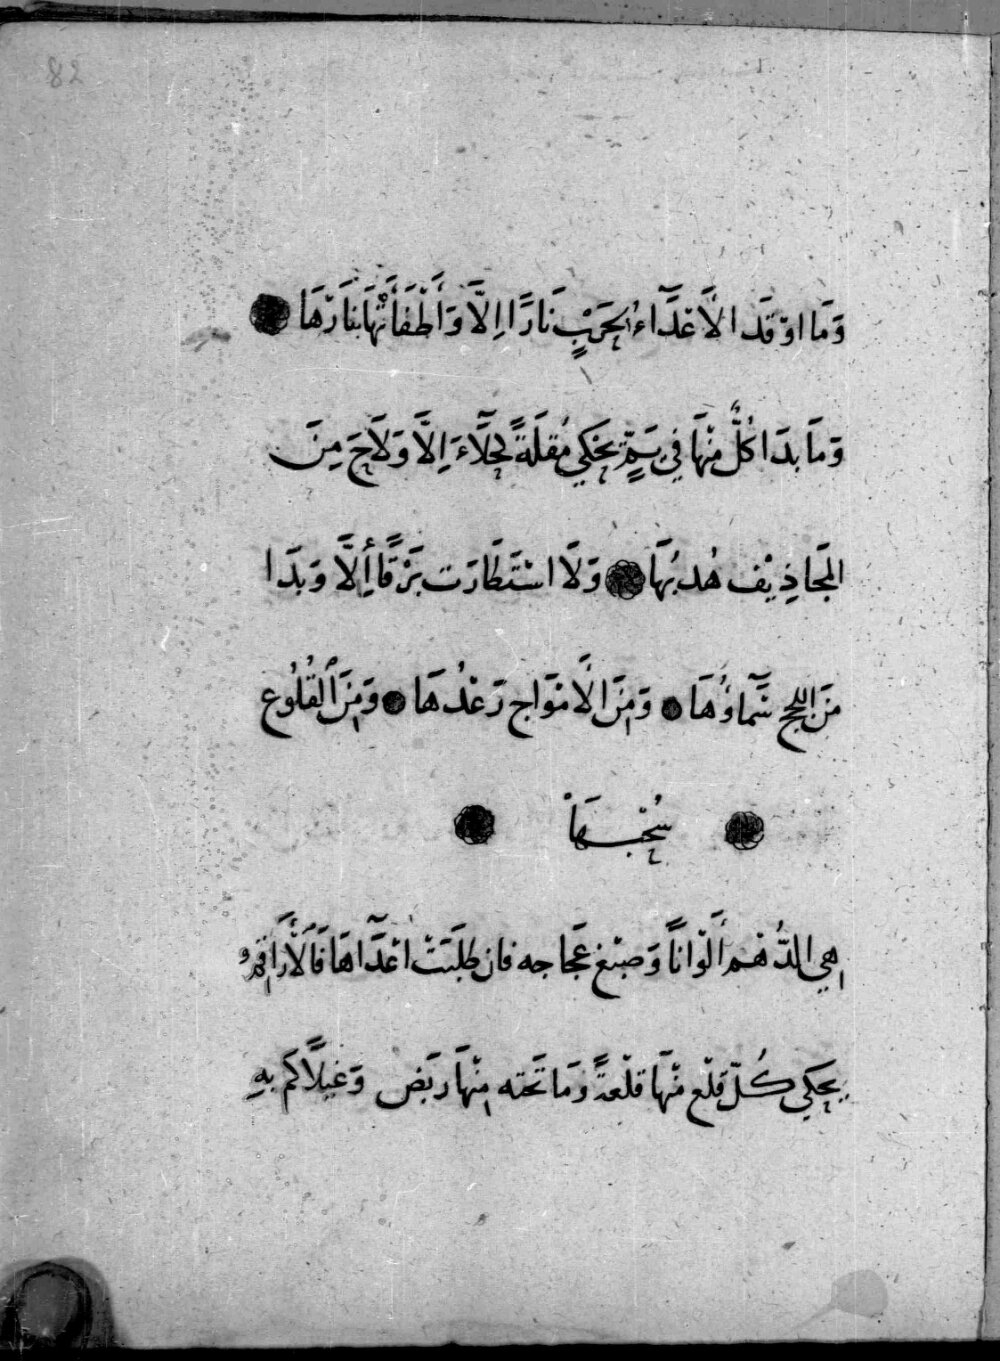 82
وَمَا اوْقَدَ الاَعْدَآءُ لِحَرْبٍ نَارًا اِلاَّ وَأَطْفَأَتْهَا بِنَارِهَا
وَمَا بدَا كُلٌّ مِنْهَا فِي يَمٍّ يَحْكِي مُقْلَةً كَحْلَآءَ اِلاَّ وَلاَحَ مِنَ
المَجَاذِيْف هُدبُهَا وَلاَ اسْتَطَارَت بَرْقًا إِلاَّ وَبَدَا
مِنَ اللجج سَمَاؤُهَا وَمِنَ الاَمْوَاج رَعْدُهَا وَمِنَ القُلُوع
سُحْبهَا
هي الدُّهْم أَلْوَاناً وَصِبْغ عَجَاجه فان طَلَبَتْ اعْدَاهَا فَالاَ
يحْكِي كُلّ قلْع مْنهَا قلْعةً وَمَا تَحته مِنْهَا رَبَض وَغيلاً كم بهِ